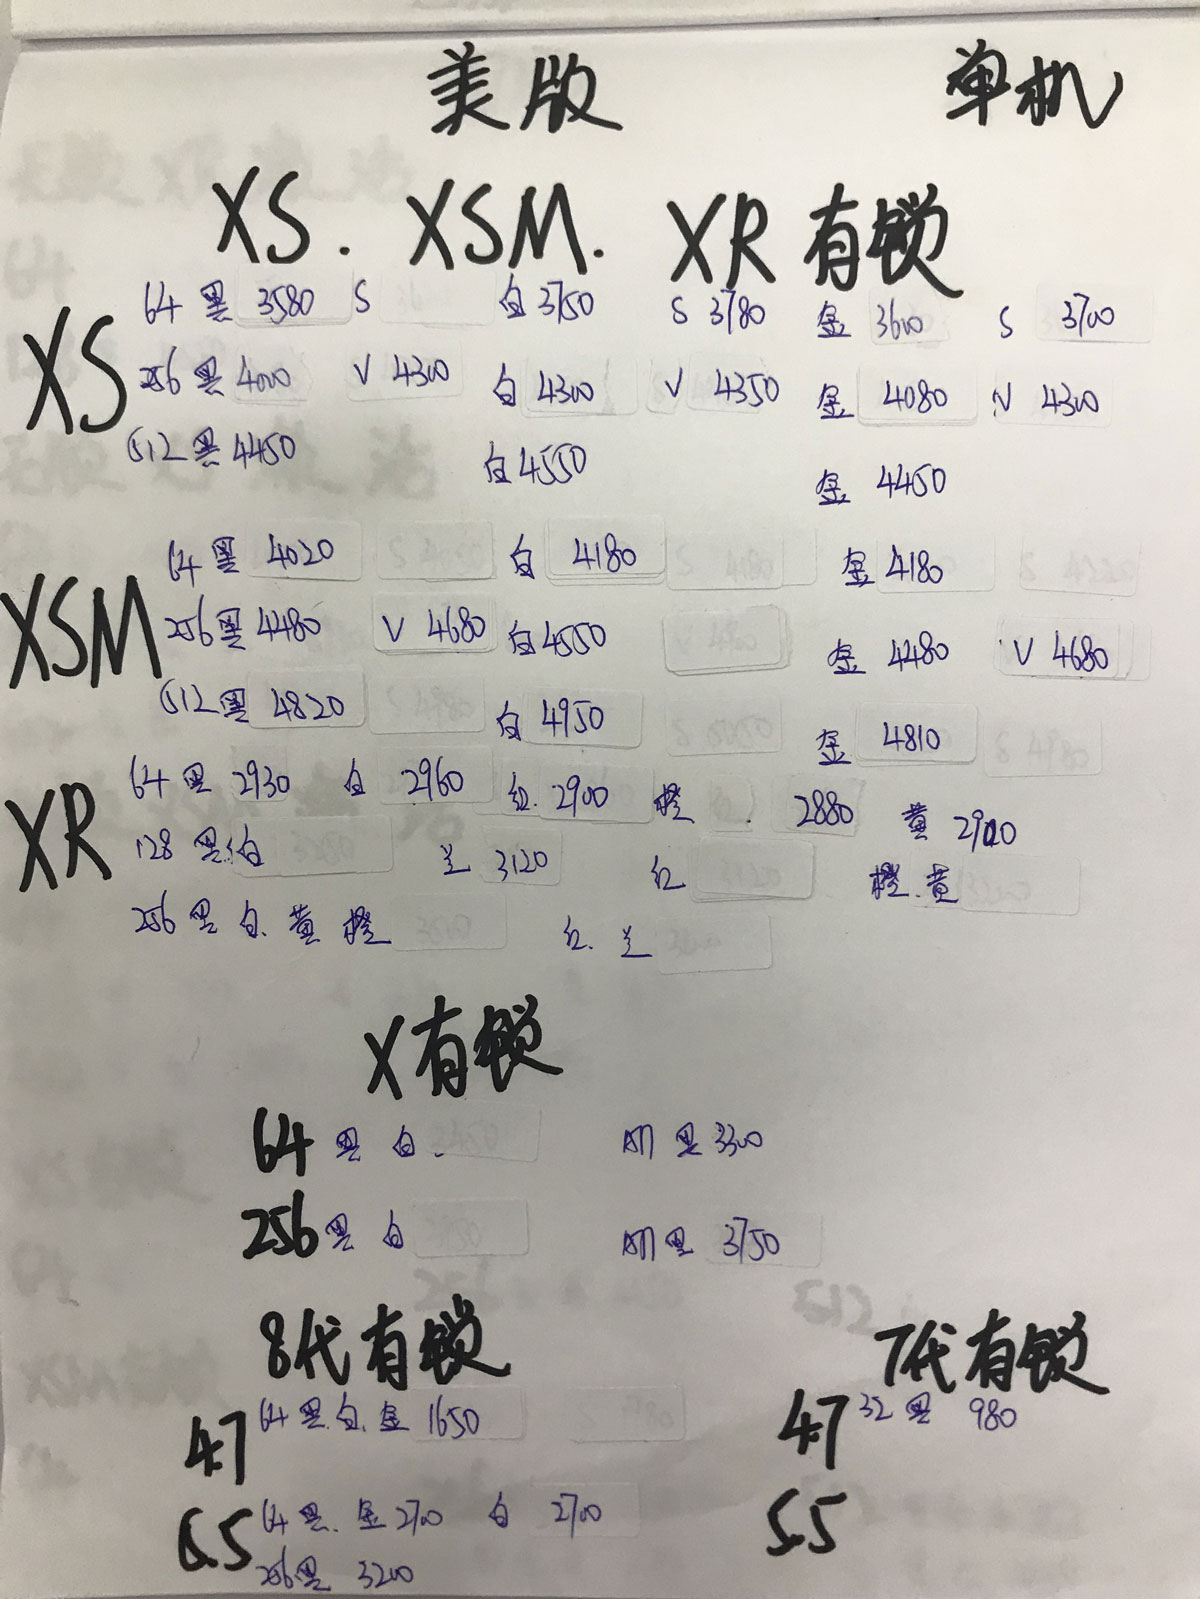 美版 单机
XS. XSM. XR有锁
XS
64 黑 3580 S 白 3750 S 3780 金 3600 S 3700
256 黑 4000 V 4300 白 4300 V 4350 金 4080 V 4300
512 黑 4450 白 4550 金 4450
XSM
64 黑 4020 白 4180 金 4180
256 黑 4480 V 4680 白 4550 金 4480 V 4680
512 黑 4820 白 4950 金 4810
XR
64 黑 2930 白 2960 红. 2900 橙. 2880 黄 2900
128 黑白 兰 3120 红 橙.黄
256 黑 白. 黄 橙 红. 兰
X有锁
64 黑 白. 黑 3300
256 黑 白 黑 3750
8代有锁 7代有锁
4.7 64 黑.白.金 1650 4.7 32 黑 980
5.5 64 黑. 金 2700 白 2700 5.5
256 黑 3200